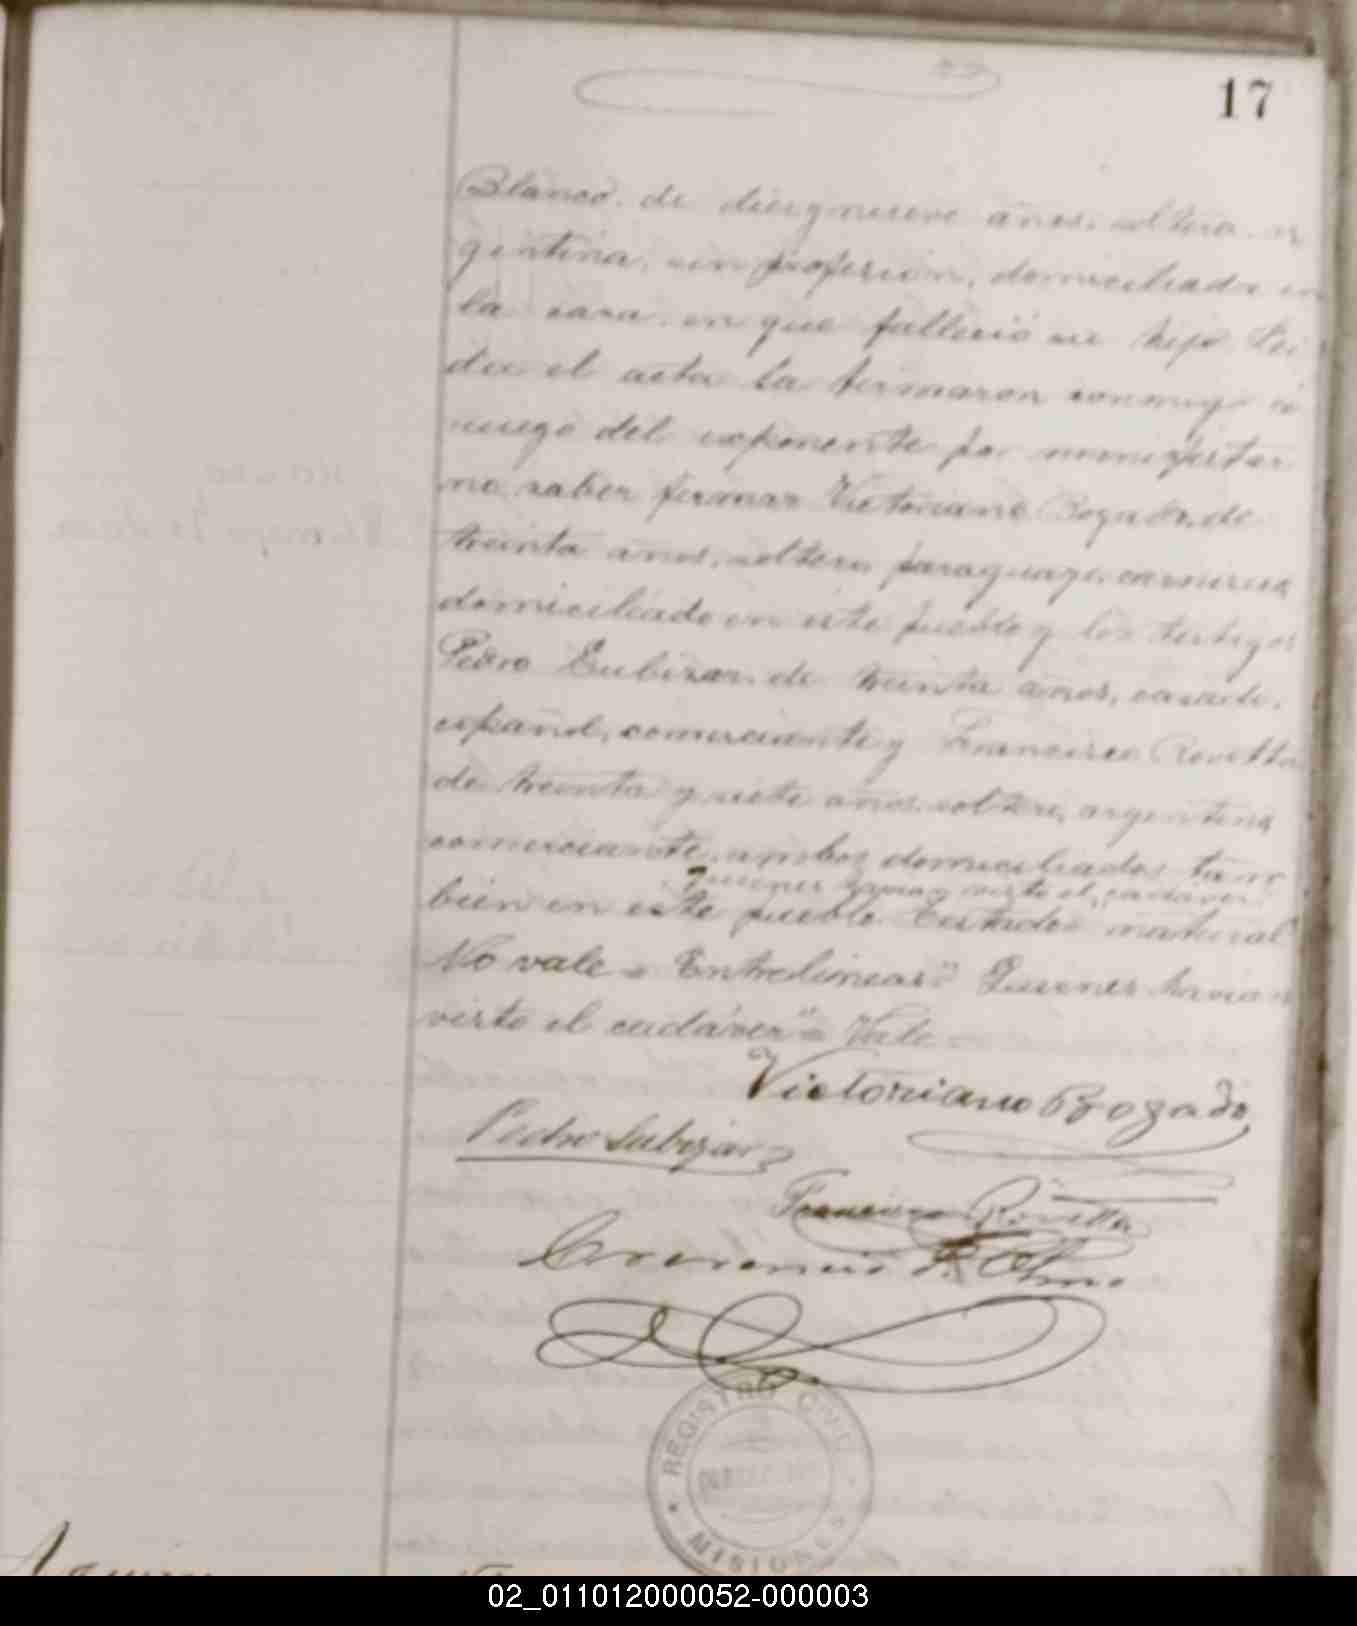 17
Blanco, de diez y nueve años, soltera, ar
gentina, sin profesion, domiciliada en
la casa en que falleció su hijo. Lei
da el acta la firmaron conmigo á
ruego del exponente por manifestar
no saber firmar Victoriano Bogado, de
treinta años, soltero, paraguayo, carnicero
domiciliado en este pueblo y los testigos
Pedro Subizar, de treinta años, casado,
español, comerciante y Francisco Rovetta
de treinta y siete años, soltero, argentino,
comerciante, ambos domiciliados tam
quienes havian visto el cadaver
bien en este pueblo. Testado = natural
No vale = Entrelineas " Quienes havian
visto el cadáver " = Vale
Victoriano Bogado
Pedro Subizar
Francisco Rovetta
REGISTRO CIVIL
MISIONES
02_011012000052-000003